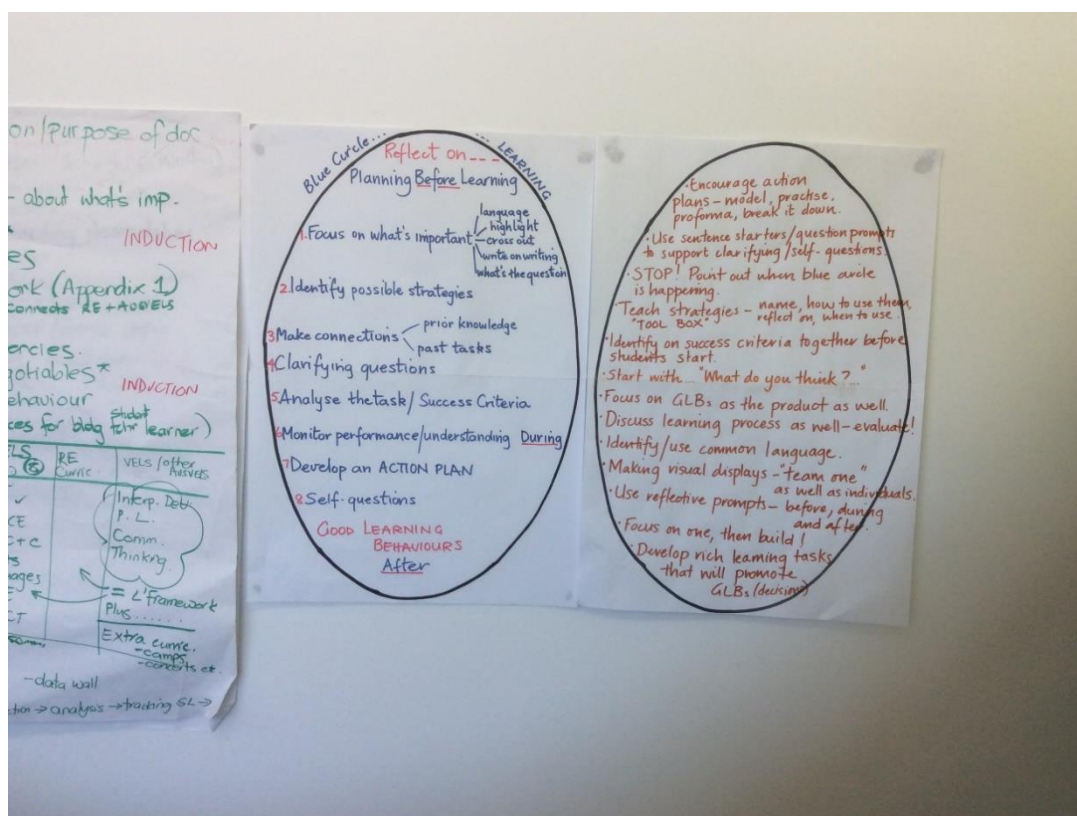 on/purpose of doc
- about what's imp.
INDUCTION
es
ork (Appendix 1)
connects RE + AUSVELS
encies.
gotiables*
INDUCTION
ehaviour
student
ces for bldg tchr learner)
RE
Curric.
VELS / other
AUSVELS
Interp. Dev.
P. L.
Comm.
Thinking.
CE
C+C
ages
= L'framework
Plus......
CT
Extra curric.
- camps
- concerts etc.
- data wall
→ analysis → tracking SL →
Blue Circle... ... LEARNING
Reflect on ---
Planning Before Learning
1. Focus on what's important
language
highlight
cross out
write on writing
what's the question
2. Identify possible strategies
3 Make connections
prior knowledge
past tasks
4 Clarifying questions
5 Analyse the task/Success Criteria
6 Monitor performance/understanding During
7 Develop an ACTION PLAN
8. Self-questions
GOOD LEARNING
BEHAVIOURS
After
• Encourage action
plans - model, practise,
proforma, break it down.
• Use sentence starters/question prompts
to support clarifying/self-questions.
• STOP! Point out when blue circle
is happening.
• Teach strategies - name, how to use them,
"TOOL BOX" reflect on, when to use.
• Identify on success criteria together before
students start.
• Start with... "What do you think?..."
• Focus on GLBs as the product as well.
• Discuss learning process as well - evaluate!
• Identify/use common language.
• Making visual displays - "team one"
as well as individuals.
• Use reflective prompts - before, during
and after.
• Focus on one, then build!
• Develop rich learning tasks
that will promote
GLBs (decision)